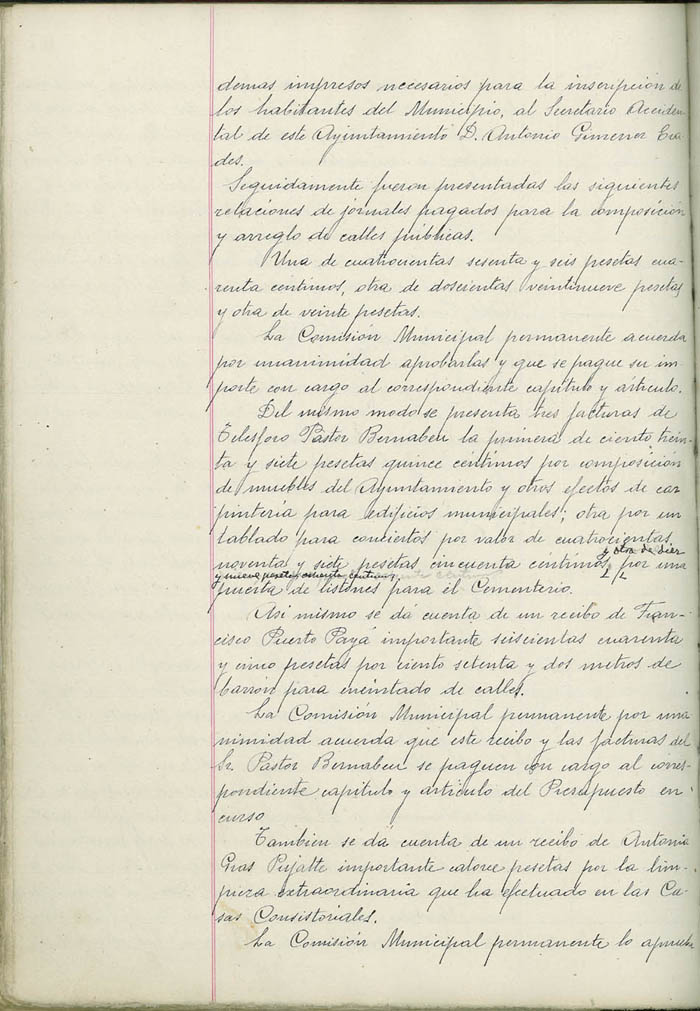 demas impresos necesarios para la inscripción de
los habitantes del Municipio, al Secretario Acciden-
tal de este Ayuntamiento D. Antonio Gimenez
des.
Seguidamente fueron presentadas las siguientes
relaciones de jornales pagados para la composición
y arreglo de calles públicas.
Una de cuatrocientas sesenta y seis pesetas cua-
renta céntimos, otra de doscientas veintinueve pesetas
y otra de veinte pesetas.
La Comisión Municipal permanente acuerda
por unanimidad aprobarlas y que se pague su im-
porte con cargo al correspondiente capitulo y artículo.
Del mismo modo se presenta tres facturas de
Telesforo Pastor Bernabeu la primera de ciento trein-
ta y siete pesetas quince céntimos por composición
de muebles del Ayuntamiento y otros efectos de car
pintería para edificios municipales; otra por un
tablado para conciertos por valor de cuatrocientas
y otra de diez
noventa y siete pesetas cincuenta céntimos, por una
y nueve pesetas céntimos
puerta de listones para el Cementerio.
Asi mismo se dá cuenta de un recibo de Fran-
cisco Puerto Payá importante seiscientas cuarenta
y cinco pesetas por ciento setenta y dos metros de
barrón para encintado de calles.
La Comisión Municipal permanente por una
nimidad acuerda que este recibo y las facturas del
Sr. Pastor Bernabeu se paguen con cargo al corres-
pondiente capitulo y artículo del Presupuesto en
curso
Tambien se dá cuenta de un recibo de Antonia
Gras Pujalte importante catorce pesetas por la lim-
pieza extraordinaria que ha efectuado en las Ca-
sas Consistoriales.
La Comisión Municipal permanente lo aprueba